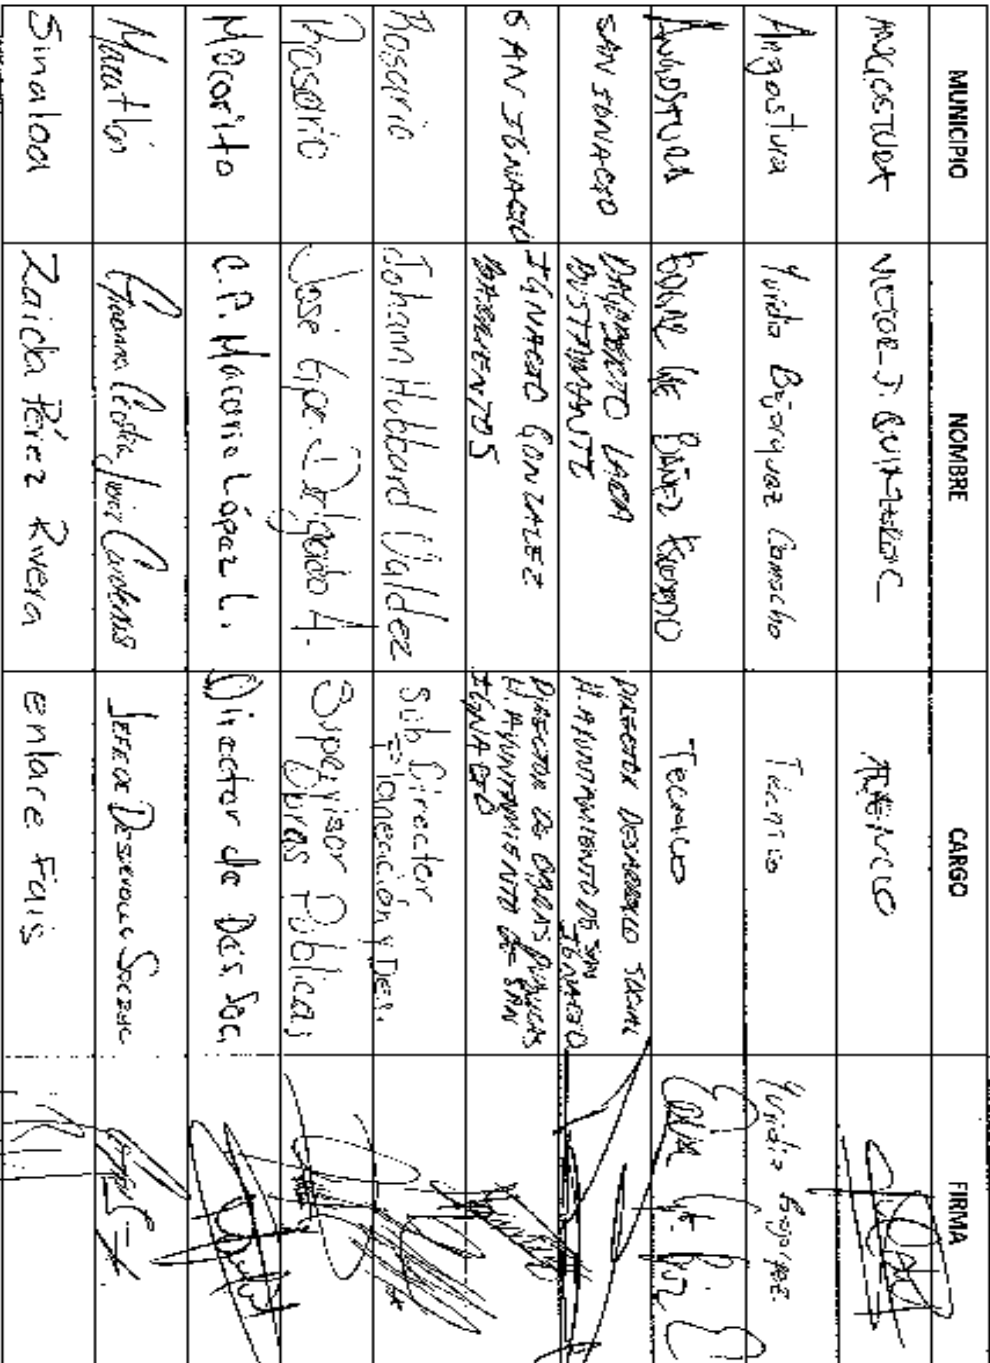 MUNICIPIO NOMBRE CARGO FIRMA
ANGOSTURA VICTOR J. TECNICO
Angostura Yuridia Bojorquez Camacho Tecnico Yuridia Bojorquez
Angostura Tecnico
SAN IGNACIO DAGOBERTO LARA
BUSTAMANTE
DIRECTOR DESARROLLO SOCIAL
H. AYUNTAMIENTO DE SAN
IGNACIO
SAN IGNACIO IGNACIO GONZALEZ
BARRIENTOS
DIRECTOR DE OBRAS PUBLICAS
H. AYUNTAMIENTO DE SAN
IGNACIO
Rosario Johann Hubbard Valdez Sub Director
Planeación y Des.
Rosario Jose Delgado A. Supervisor
Obras Públicas
Mocorito C.P. Macario López L. Director de Des Soc.
Mazatlán Cardenas JEFE DE DESARROLLO SOCIAL
Sinaloa Zaida Pérez Rivera enlace Fais